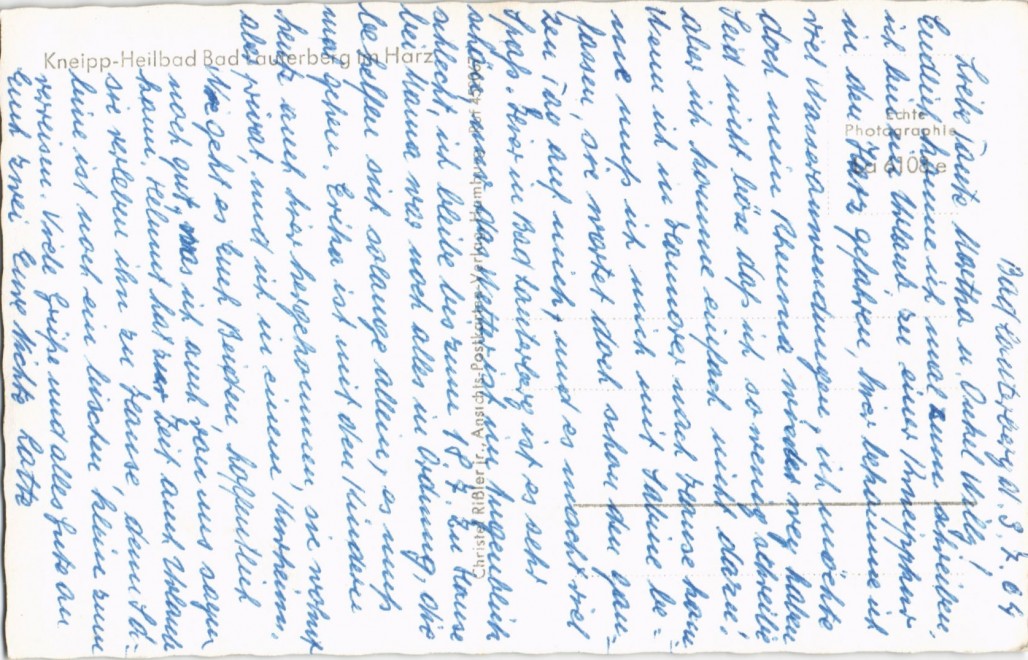 Kneipp-Heilbad Bad Lauterberg im Harz
Echte
Photographie
Christel Rißler jr., Ansichts-Postkarten-Verlag, Hamburg
Bad Lauterberg d. 9.7.64
Liebe Tante Martha u. Onkel Willy!
Endlich komme ich mal zum schreiben,
ich bin in Urlaub zu einer
in den Harz gefahren, hier bekomme ich
viel Wasseranwendungen, ich möchte
doch mein Rheuma wieder weg haben
Seid nicht böse daß ich so wenig schreibe
aber ich komme einfach nicht dazu,
Wenn ich in Hannover nach Hause kom-
me muß ich mich mit Sabine be=
fassen, sie wartet doch schon den gan-
zen Tag auf mich, und es macht viel
Spaß. Hier in Bad Lauterberg ist es sehr
schön, nur das Wetter ist im Augenblick
schlecht, ich bleibe bis zum 18.7. Zu Hause
bei Mama war noch alles in Ordnung, die
behelfen sich solange allein, es muß
mal gehn. Erika ist mit den Kindern
heute auch hier hergekommen, sie wohnt
aber privat und ich in einem Kurheim.
Wie geht es Euch Beiden hoffentlich
noch gut, was ich auch von uns sagen
kann. Helmut hat zur Zeit auch Urlaub
wir wollen ihn zu Hause, denn Sa=
bine ist noch ein bischen klein zum
verreisen. Viele Grüße und alles Gute an
Euch zwei Eure Nichte Lotte